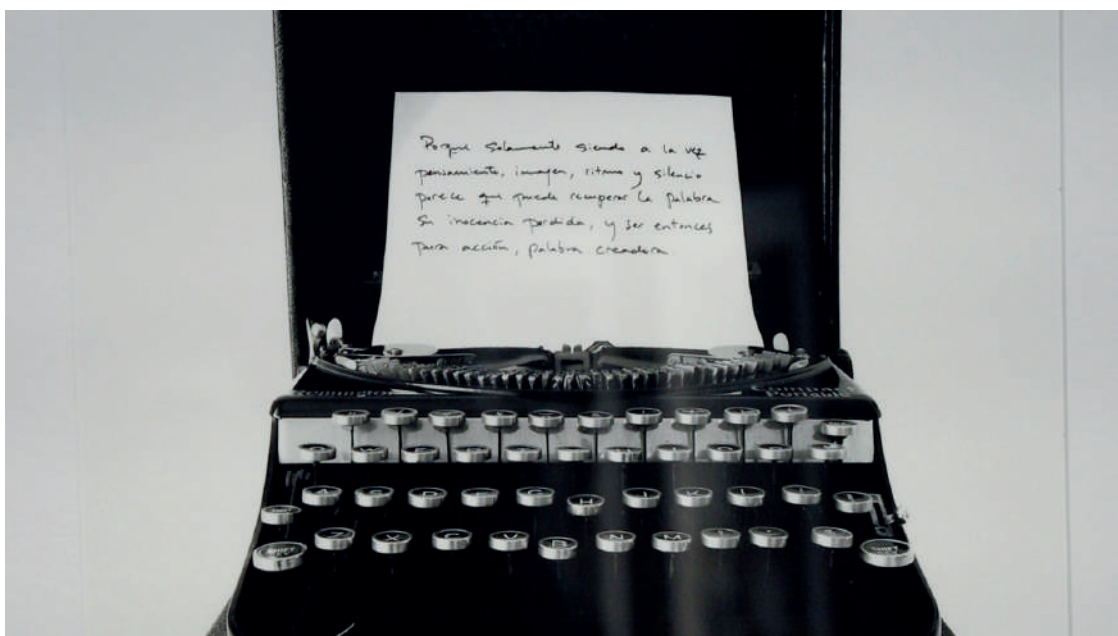 Porque solamente siendo a la vez
pensamiento, imagen, ritmo y silencio
parece que puede recuperar la palabra
su inocencia perdida, y ser entonces
pura acción, palabra creadora.
Portable
A S D F G H J K L
Z X C V B N M